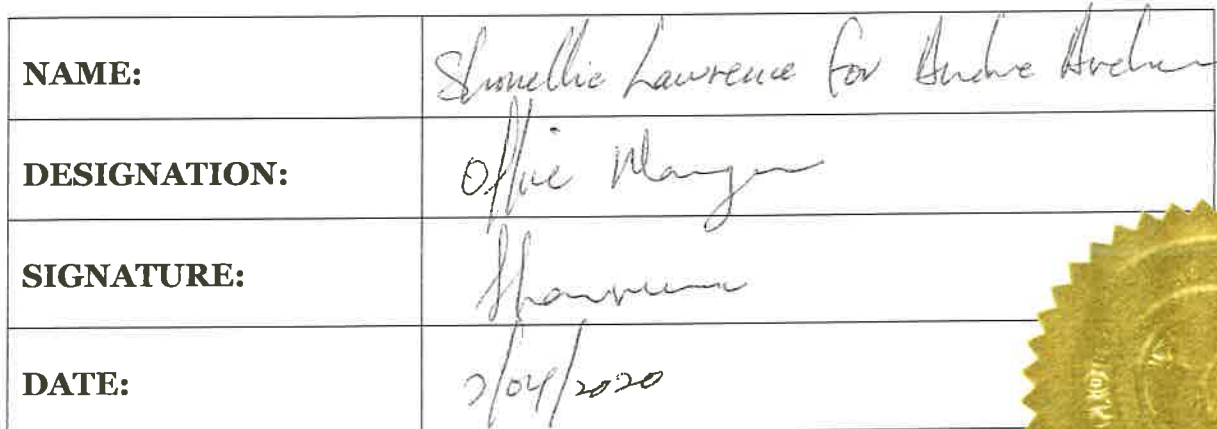 NAME: Shonellie Lawrence for Andre Archer
DESIGNATION: Office Manager
SIGNATURE:
DATE: 2/04/2020